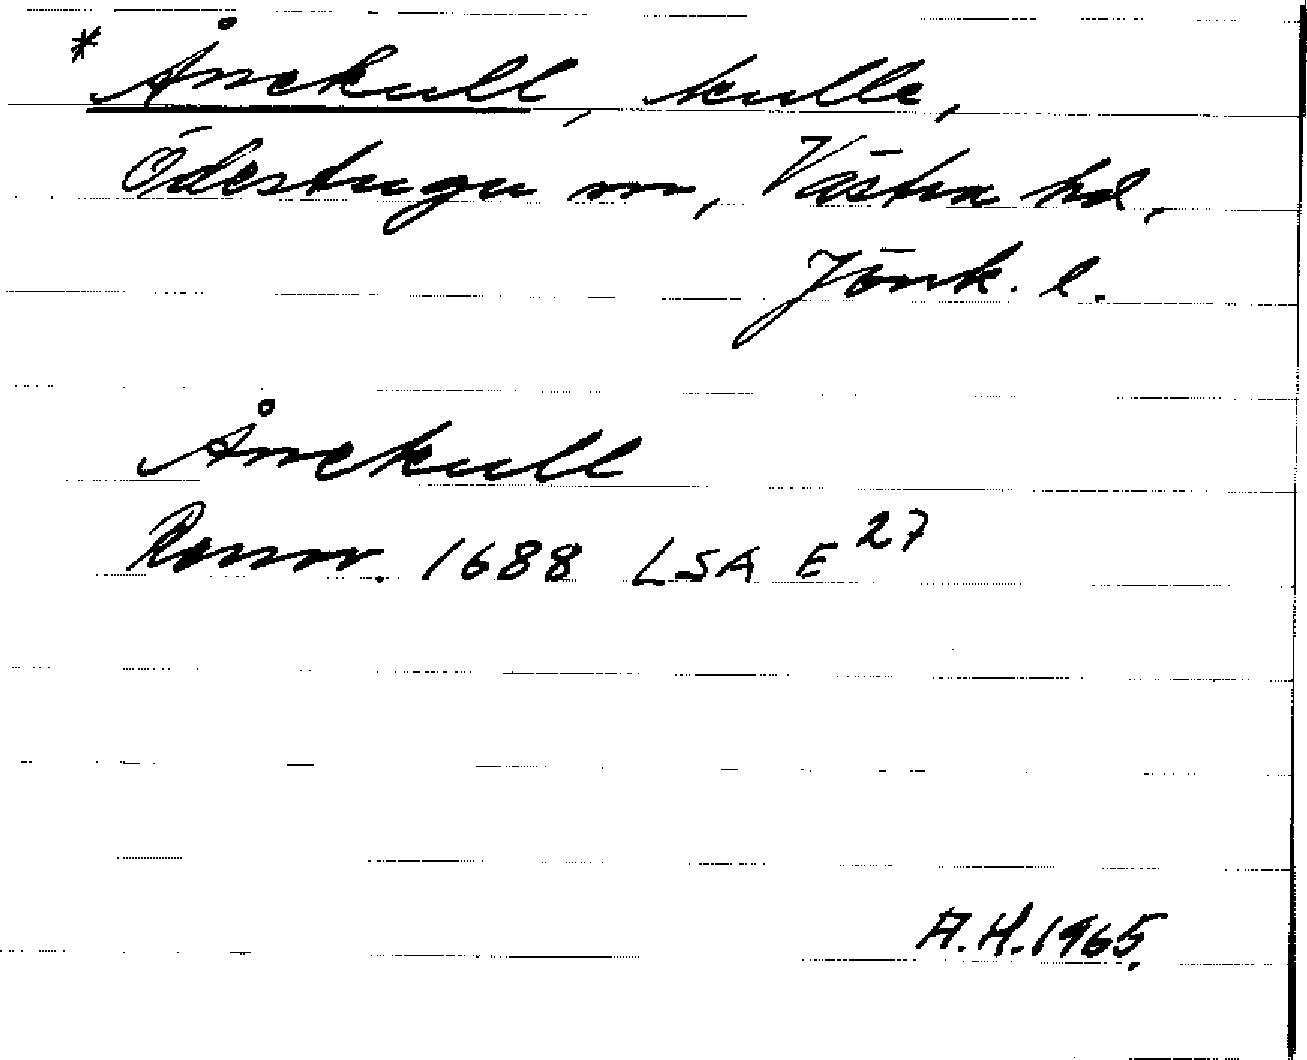 * Ånekull, kulle,
Ödestugu sn, Västra hd,
Jönk. l.
Ånekull
Rannr. 1688 LSA E 27
A.H. 1965.